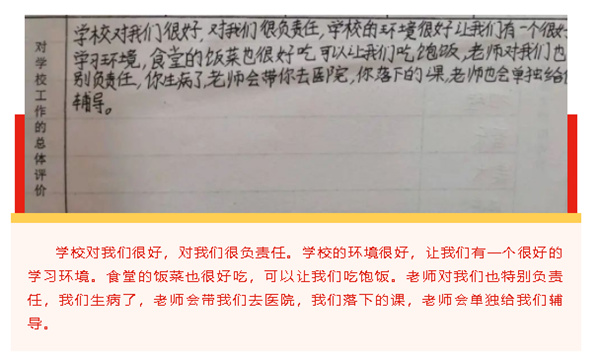 对学校工作的总体评价
学校对我们很好，对我们很负责任，学校的环境很好让我们有一个很好
学习环境，食堂的饭菜也很好吃可以让我们吃饱饭，老师对我们也
别负责任，你生病了，老师会带你去医院，你落下的课，老师也会单独给
辅导。
学校对我们很好，对我们很负责任。学校的环境很好，让我们有一个很好的
学习环境。食堂的饭菜也很好吃，可以让我们吃饱饭。老师对我们也特别负责
任，我们生病了，老师会带我们去医院，我们落下的课，老师会单独给我们辅
导。